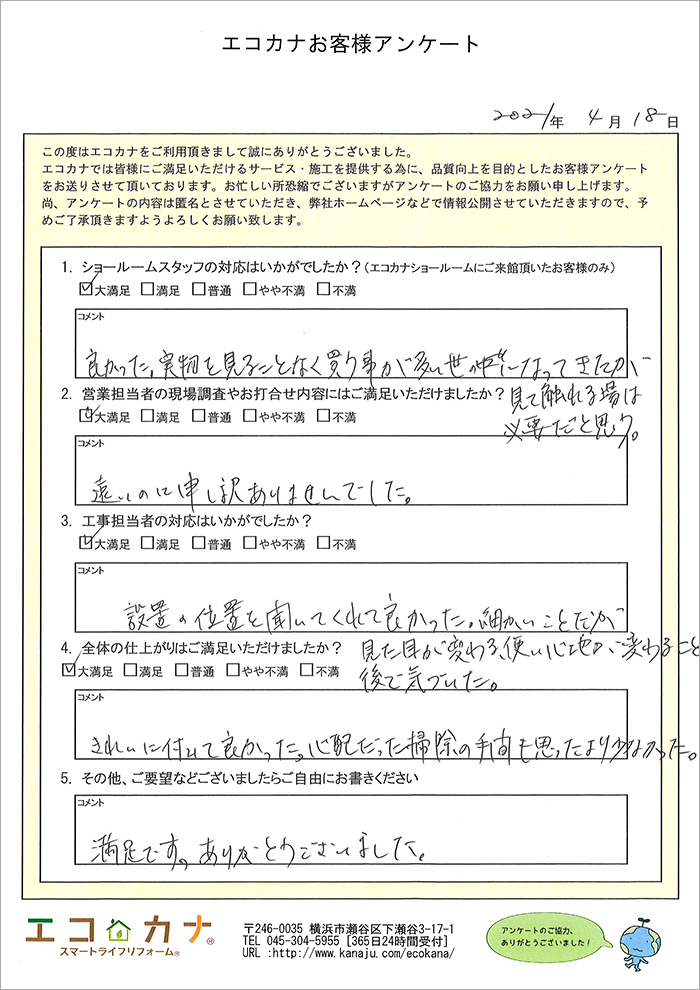 エコカナお客様アンケート
2021年 4月 18日
この度はエコカナをご利用頂きまして誠にありがとうございました。
エコカナでは皆様にご満足いただけるサービス・施工を提供する為に、品質向上を目的としたお客様アンケート
をお送りさせて頂いております。お忙しい所恐縮でございますがアンケートのご協力をお願い申し上げます。
尚、アンケートの内容は匿名とさせていただき、弊社ホームページなどで情報公開させていただきますので、予
めご了承頂きますようよろしくお願い致します。
1. ショールームスタッフの対応はいかがでしたか？(エコカナショールームにご来館頂いたお客様のみ)
☑大満足 □満足 □普通 □やや不満 □不満
コメント
良かった。実物を見ることなく買う事が多い世の中になってきたが
見て触れる場は
必要だと思う。
2. 営業担当者の現場調査やお打合せ内容にはご満足いただけましたか？
☑大満足 □満足 □普通 □やや不満 □不満
コメント
遠いのに申し訳ありませんでした。
3. 工事担当者の対応はいかがでしたか？
☑大満足 □満足 □普通 □やや不満 □不満
コメント
設置の位置を聞いてくれて良かった。細かいことだが
見た目が変わる、使い心地が変わること
後で気づいた。
4. 全体の仕上がりはご満足いただけましたか？
☑大満足 □満足 □普通 □やや不満 □不満
コメント
きれいに付いて良かった。心配だった掃除の手間も思ったより少なかった。
5. その他、ご要望などございましたらご自由にお書きください
コメント
満足です。ありがとうございました。
エコカナ®
スマートライフリフォーム®
〒246-0035 横浜市瀬谷区下瀬谷3-17-1
TEL 045-304-5955 [365日24時間受付]
URL :http://www.kanaju.com/ecokana/
アンケートのご協力、
ありがとうございました！